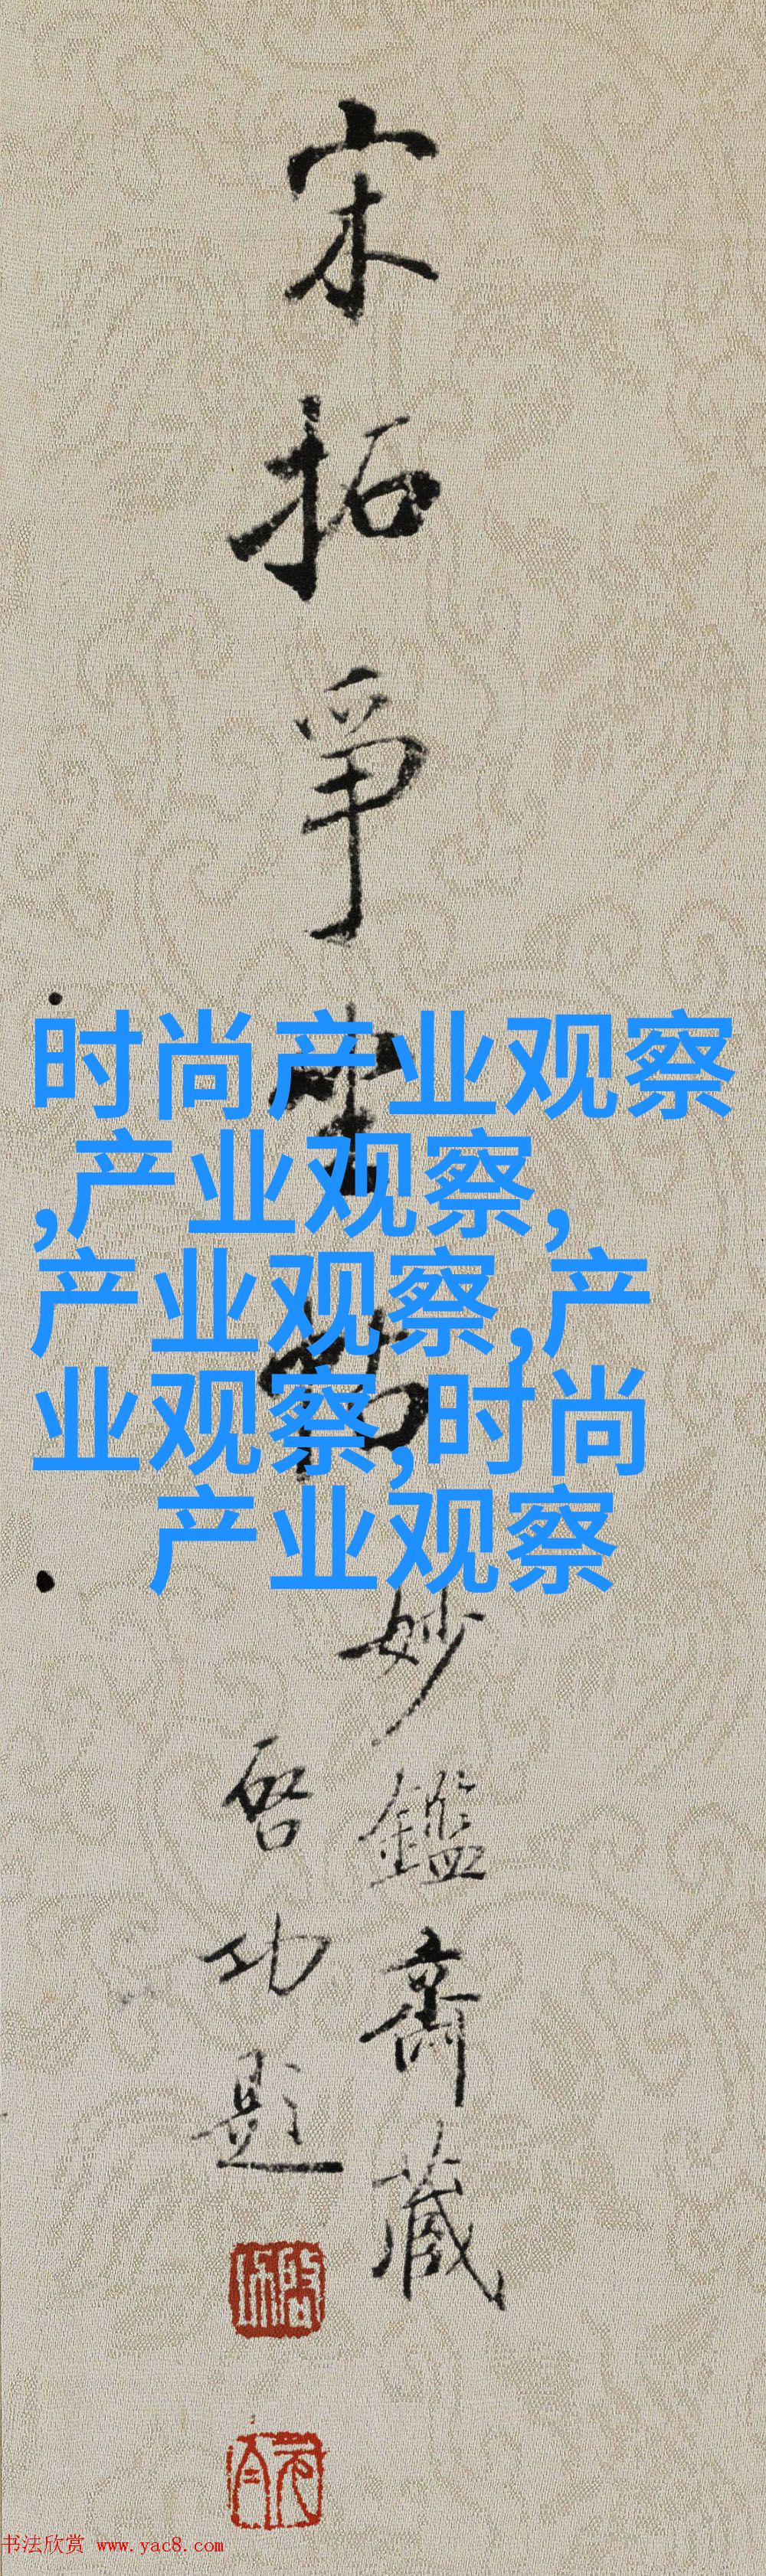 宋拓争坐
妙鑑斋藏
启功题
时尚产业观察
,产业观察,
产业观察,产
业观察,时尚
产业观察
书法欣赏 www.yac8.com